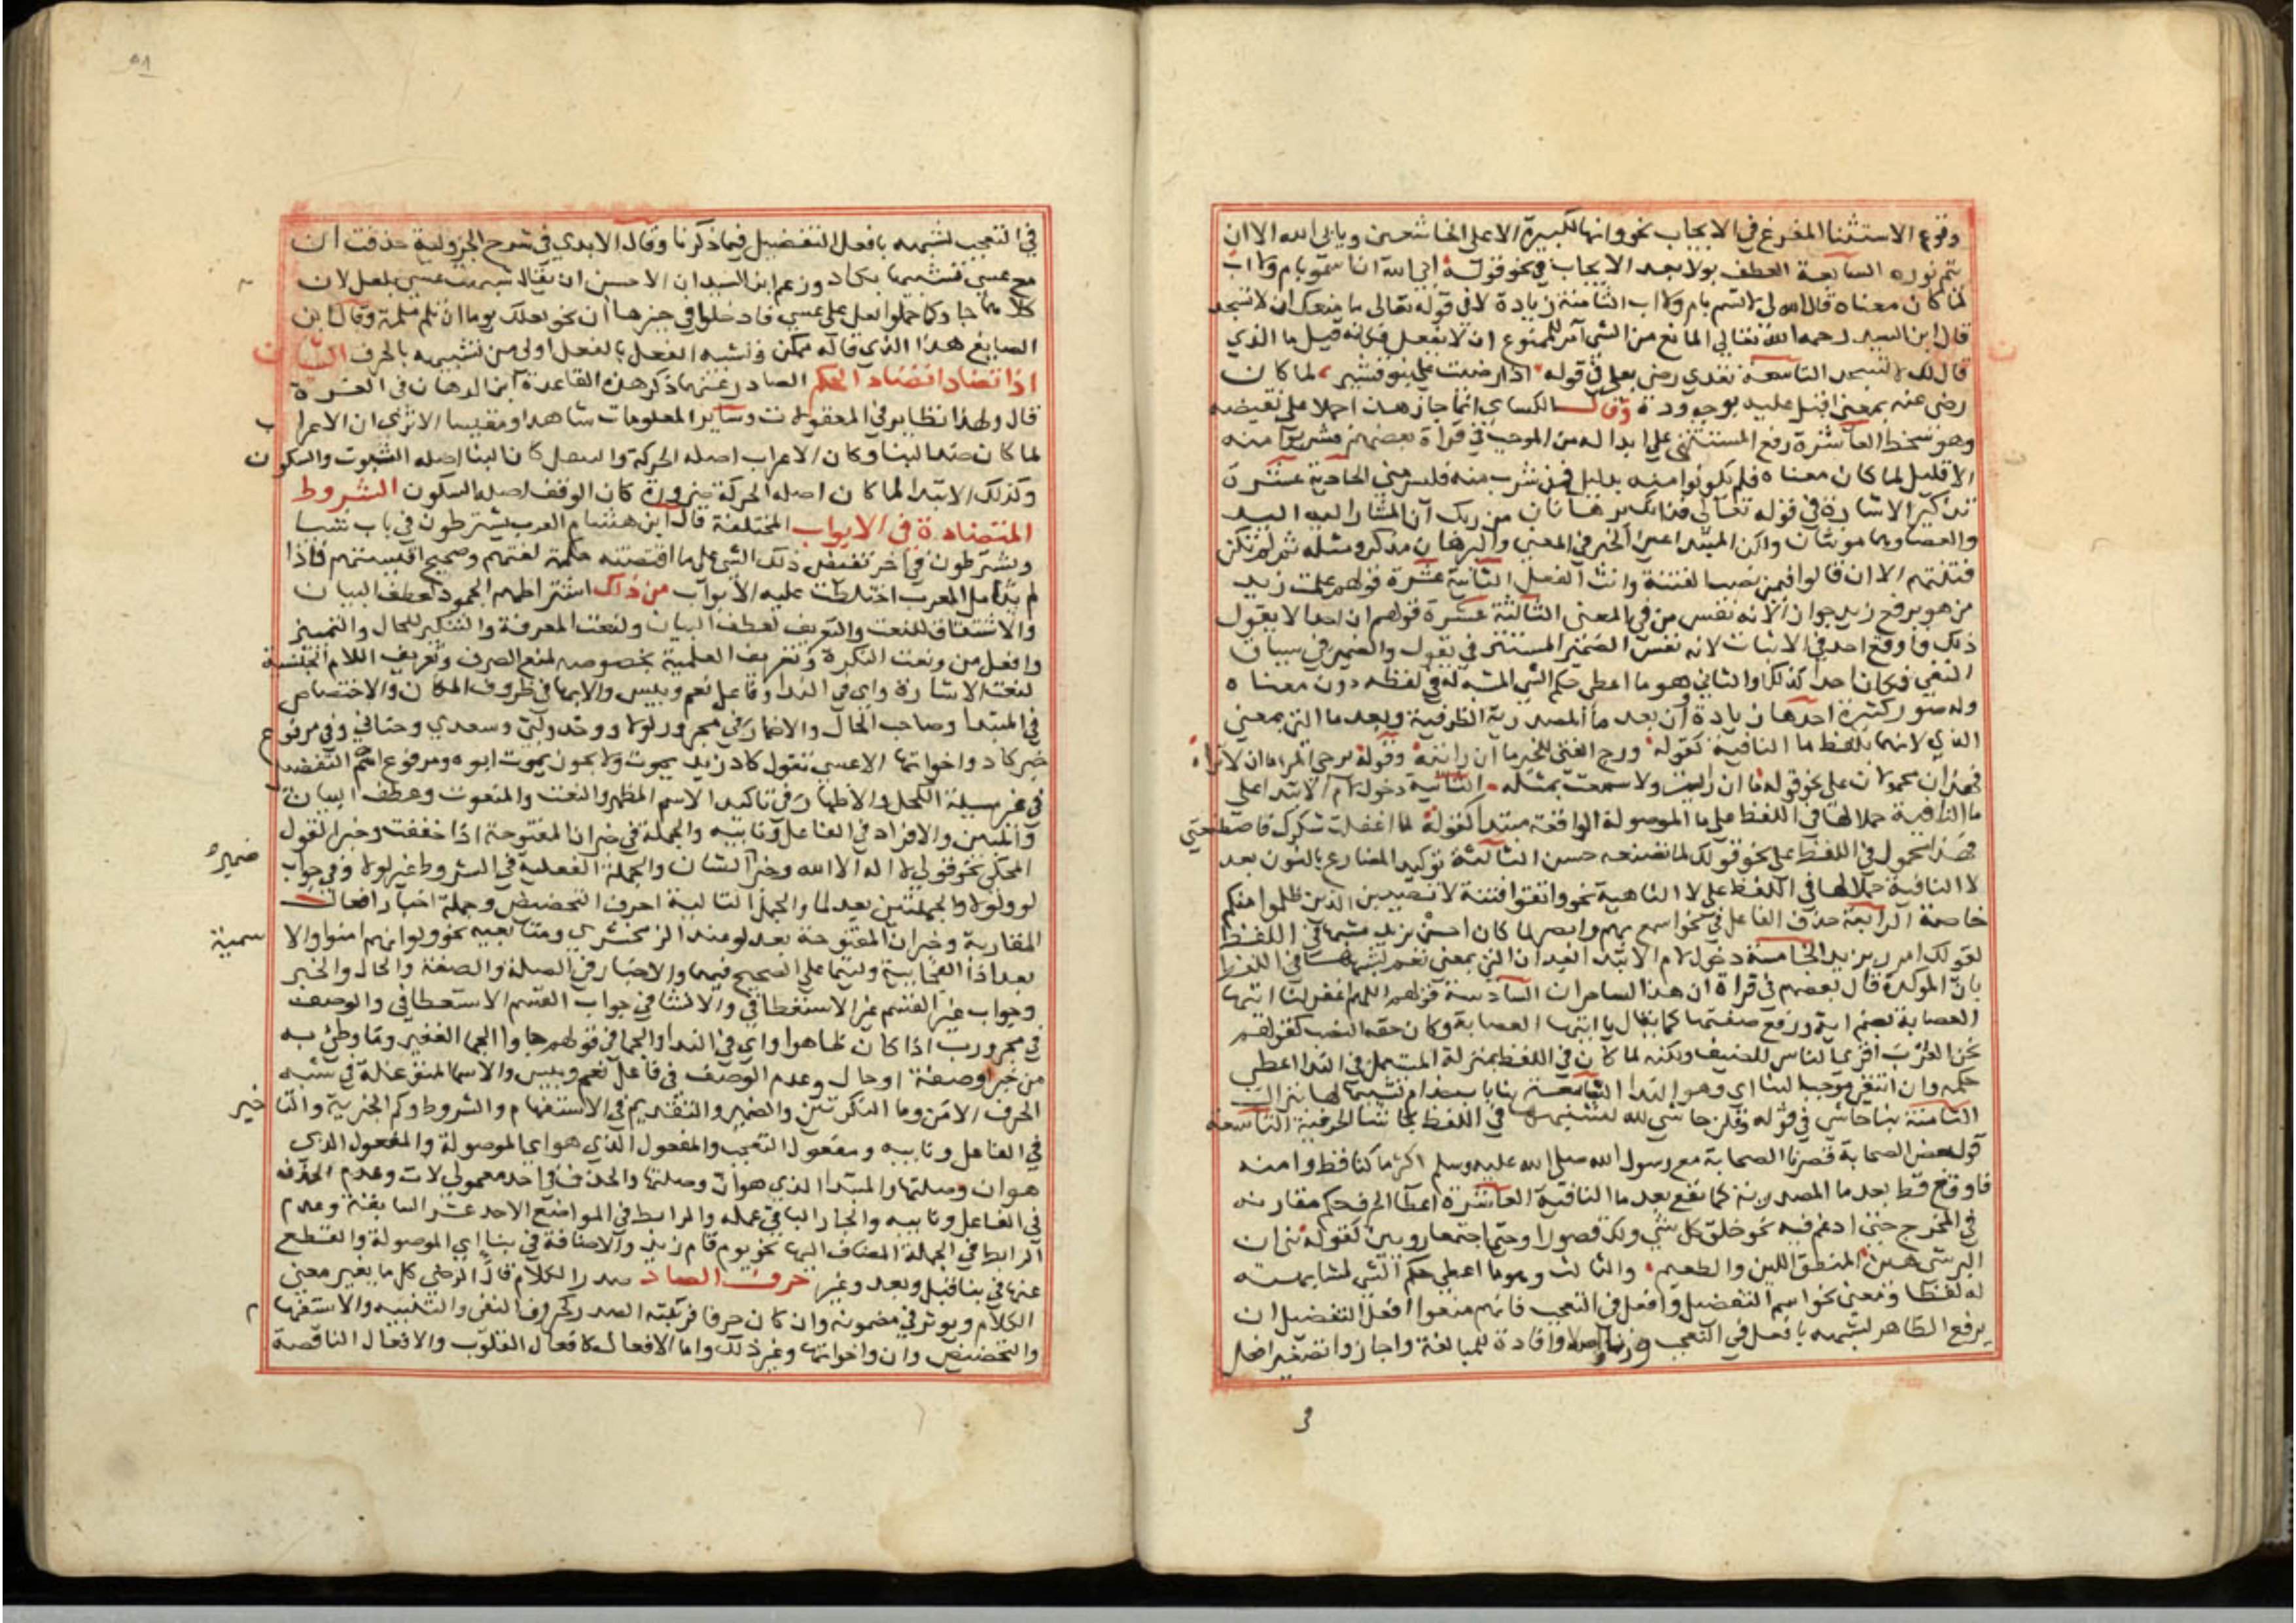 وقوع الاستثنا المفرغ في الايجاب نحو وانها لكبيرة الا على الخاشعين ويابى الله الا ان
يتم نوره السابعة العطف بولا بعد الايجاب في نحو قوله ابى الله ان اسمو بام ولا اب
لما كان معناه قال الله لي لا تسم بام ولا اب الثامنة زيادة لا في قوله تعالى ما منعك ان لا تسجد
قال ابن السيد رحمه الله تعالى المانع من الشي آمر للممنوع ان لا يفعل فكانه قيل ما الذي
قال لك لا تسجد التاسعة تعدي رضي بعلى في قوله اذا رضيت علي بنو قشير لما كان
رضي عنه بمعنى اقبل عليه بوجه وده وقال الكساي انما جاز هذا حملا على نقيضه
وهو سخط العاشرة رفع المستثنى على ابداله من الموجب في قراة بعضهم فشربوا منه
الا قليل لما كان معناه فلم يكونوا منه بدليل فمن شرب منه فليس مني الحادية عشرة
تذكير الاشارة في قوله تعالى فذانك برهانان من ربك ان المشار اليه اليد
والعصا وهما مونثان ولكن المبتدا عين الخبر في المعنى والبرهان مذكر ومثله ثم لم تكن
فتنتهم الا ان قالوا فيمن نصب الفتنة وانث الفعل الثانية عشرة قولهم علمت زيد
من هو برفع زيد جوازا لانه نفس من في المعنى الثالثة عشرة قولهم ان احدا لا يقول
ذلك فاوقع احد في الاثبات لانه نفس الضمير المستتر في يقول والضمير في سياق
النفي فكان احد كذلك والثاني هو ما اعطي حكم الشي المشبه له في لفظه دون معناه
وله صور كثيرة احدها زيادة ان بعد ما المصدرية الظرفية وبعد ما التي بمعنى
الذي لانهما بلفظ ما النافية كقوله ورج الفتى للخير ما ان رايته وقوله يرجي المر ما ان لا يراه
فهذان محمولان على نحو قوله ما ان رايت ولا سمعت بمثله الثانية دخول لام الابتدا على
ما النافية حملا لها في اللفظ على ما الموصولة الواقعة مبتدا كقوله لما اغفلت شكرك فاصطنعني
فهذا محمول في اللفظ على نحو قولك لما تصنعه حسن الثالثة توكيد المضارع بالنون بعد
لا النافية حملا لها في اللفظ على لا الناهية نحو واتقوا فتنة لا تصيبن الذين ظلموا منكم
خاصة الرابعة حذف الفاعل في نحو اسمع بهم وابصر لما كان احسن بزيد مشبها في اللفظ
لقولك امرر بزيد الخامسة دخول لام الابتدا بعد ان التي بمعنى نعم لشبهها في اللفظ
بان الموكدة قال بعضهم في قراة ان هذان لساحران السادسة قولهم اللهم اغفر لنا ايتها
العصابة بضم اية ورفع صفتها كما يقال يا ايتها العصابة وكان حقه النصب كقولهم
نحن العرب اقرى الناس للضيف ولكنه لما كان في اللفظ بمنزلة المستعمل في الندا اعطي
حكمه وان انتفى موجب البنا اي وهو الندا السابعة بنا باب حذام تشبيها لها بنزال
الثامنة بنا حاشى في قوله وقلن حاشى لله لشبهها في اللفظ بحاشا الحرفية التاسعة
قول بعض الصحابة قصرنا الصحابة مع رسول الله صلى الله عليه وسلم اكثر ما كنا قط وامنه
فاوقع قط بعد ما المصدرية كما تقع بعد ما النافية العاشرة اعطا الحرف حكم مقاربه
في المخرج حتى ادغم فيه نحو خلق كل شي ولك قصورا وحتى اجتمعا رويين كقوله بني ان
البر شي هين المنطق اللين والطعيم والثالث وهو ما اعطي حكم الشي لمشابهته
له لفظا ومعنى نحو اسم التفضيل وافعل في التعجب فانهم منعوا افعل التفضيل ان
يرفع الظاهر لشبهه بافعل في التعجب وزنا واصلا وافادة للمبالغة واجازوا تصغير افعل
في
في التعجب لشبهه بافعل التفضيل فيما ذكرنا وقال الابدي في شرح الجزولية حذفت ان
مع عسى تشبيها بكاد وزعم ابن السيد ان الاحسن ان يقال شبهت عسى بلعل لان
كلا منهما رجا وكما حملوا لعل على عسى فادخلوا في خبرها ان نحو لعلك يوما ان تلم ملمة وقال ابن
الصايغ هذا الذي قاله ممكن وتشبه الفعل بالفعل اولى من تشبيهه بالحرف الشيان
اذا تضادا تضاد الحكم الصادر عنهما ذكر هذه القاعدة ابن الدهان في الغرة
قال ولهذا نظاير في المعقولات وساير المعلومات شاهدا ومقيسا الا ترى ان الاعراب
لما كان ضد البنا وكان الاعراب اصله الحركة والتنقل كان البنا اصله الثبوت والسكون
وكذلك الابتدا لما كان اصله الحركة ضرورة كان الوقف اصله السكون الشروط
المتضادة في الابواب المختلفة قال ابن هشام العرب يشترطون في باب شيا
ويشترطون في اخر نقيض ذلك الشي على ما اقتضته حكمة لغتهم وصحيح اقيستهم فاذا
لم يتامل المعرب اختلطت عليه الابواب من ذلك اشتراطهم الجمود لعطف البيان
والاشتقاق للنعت والتعريف لعطف البيان ولنعت المعرفة والتنكير للحال والتمييز
وافعل من ونعت النكرة وتعريف العلمية بخصوصه لمنع الصرف وتعريف اللام الجنسية
لنعت الاشارة واي في الندا وفاعل نعم وبيس والابهام في ظروف المكان والاختصاص
في المبتدا وصاحب الحال والاضمار في مجرور لولا ووحد ولبي وسعدي وحناني وفي مرفوع
خبر كاد واخواتها الا عسى تقول كاد زيد يموت ولا يجوز يموت ابوه ومرفوع اسم التفضيل
في غير مسيلة الكحل والاظهار في تاكيد الاسم المظهر والنعت والمنعوت وعطف البيان
والمبين والافراد في الفاعل ونايبه والجملة في خبر ان المفتوحة اذا خففت وخبر القول
المحكي نحو قولي لا اله الا الله وخبر الشان والجملة الفعلية في الشروط غير لولا وفي جواب
ضميره
لو ولولا والجملتين بعد لما والجمل التالية احرف التحضيض وجملة اخبار افعال
المقاربة وخبر ان المفتوحة بعد لو عند الزمخشري ومتابعيه نحو ولو انهم امنوا والا
سمية
بعد اذا الفجايية وليتما على الصحيح فيهما والاخبار في الصلة والصفة والحال والخبر
وجواب غير القسم غير الاستعطافي والانشا في جواب القسم الاستعطافي والوصف
في مجرور رب اذا كان ظاهرا واي في الندا والجما في قولهم جاوا الجما الغفير وما وطي به
من خبر او صفة او حال وعدم الوصف في فاعل نعم وبيس والاسما المتوغلة في شبه
الحرف الا من وما النكرتين والضمير والتقديم في الاستفهام والشروط وكم الخبرية والتا
خير
في الفاعل ونايبه ومفعول التعجب والمفعول الذي هو اي الموصولة والمفعول الذي
هو ان وصلتها والمبتدا الذي هو ان وصلتها والحذف في احد معمولي لات وعدم الحذف
في الفاعل ونايبه والجار الباقي عمله والرابط في المواضع الاحد عشر السابقة وعدم
الرابط في الجملة المضاف اليها نحو يوم قام زيد والاضافة في بنا اي الموصولة والقطع
عنها في بنا قبل وبعد وغير حرف الصاد صدر الكلام قال الرضي كل ما يغير معنى
الكلام ويوثر في مضمونه وان كان حرفا فرتبته الصدر كحروف النفي والتنبيه والاستفهام
والتحضيض وان واخواتها وغير ذلك واما الافعال كافعال القلوب والافعال الناقصة